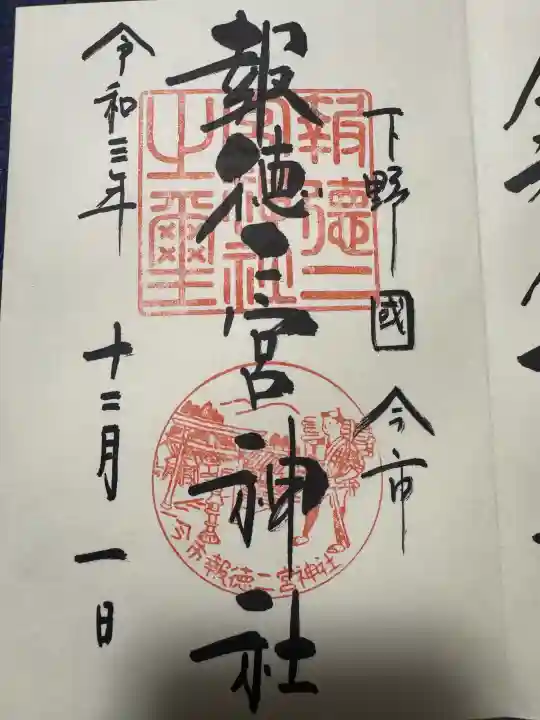 下野國 今市
報徳二宮神社
令和三年 十二月 一日
報徳二
宮神社
之璽
今市報徳二宮神社